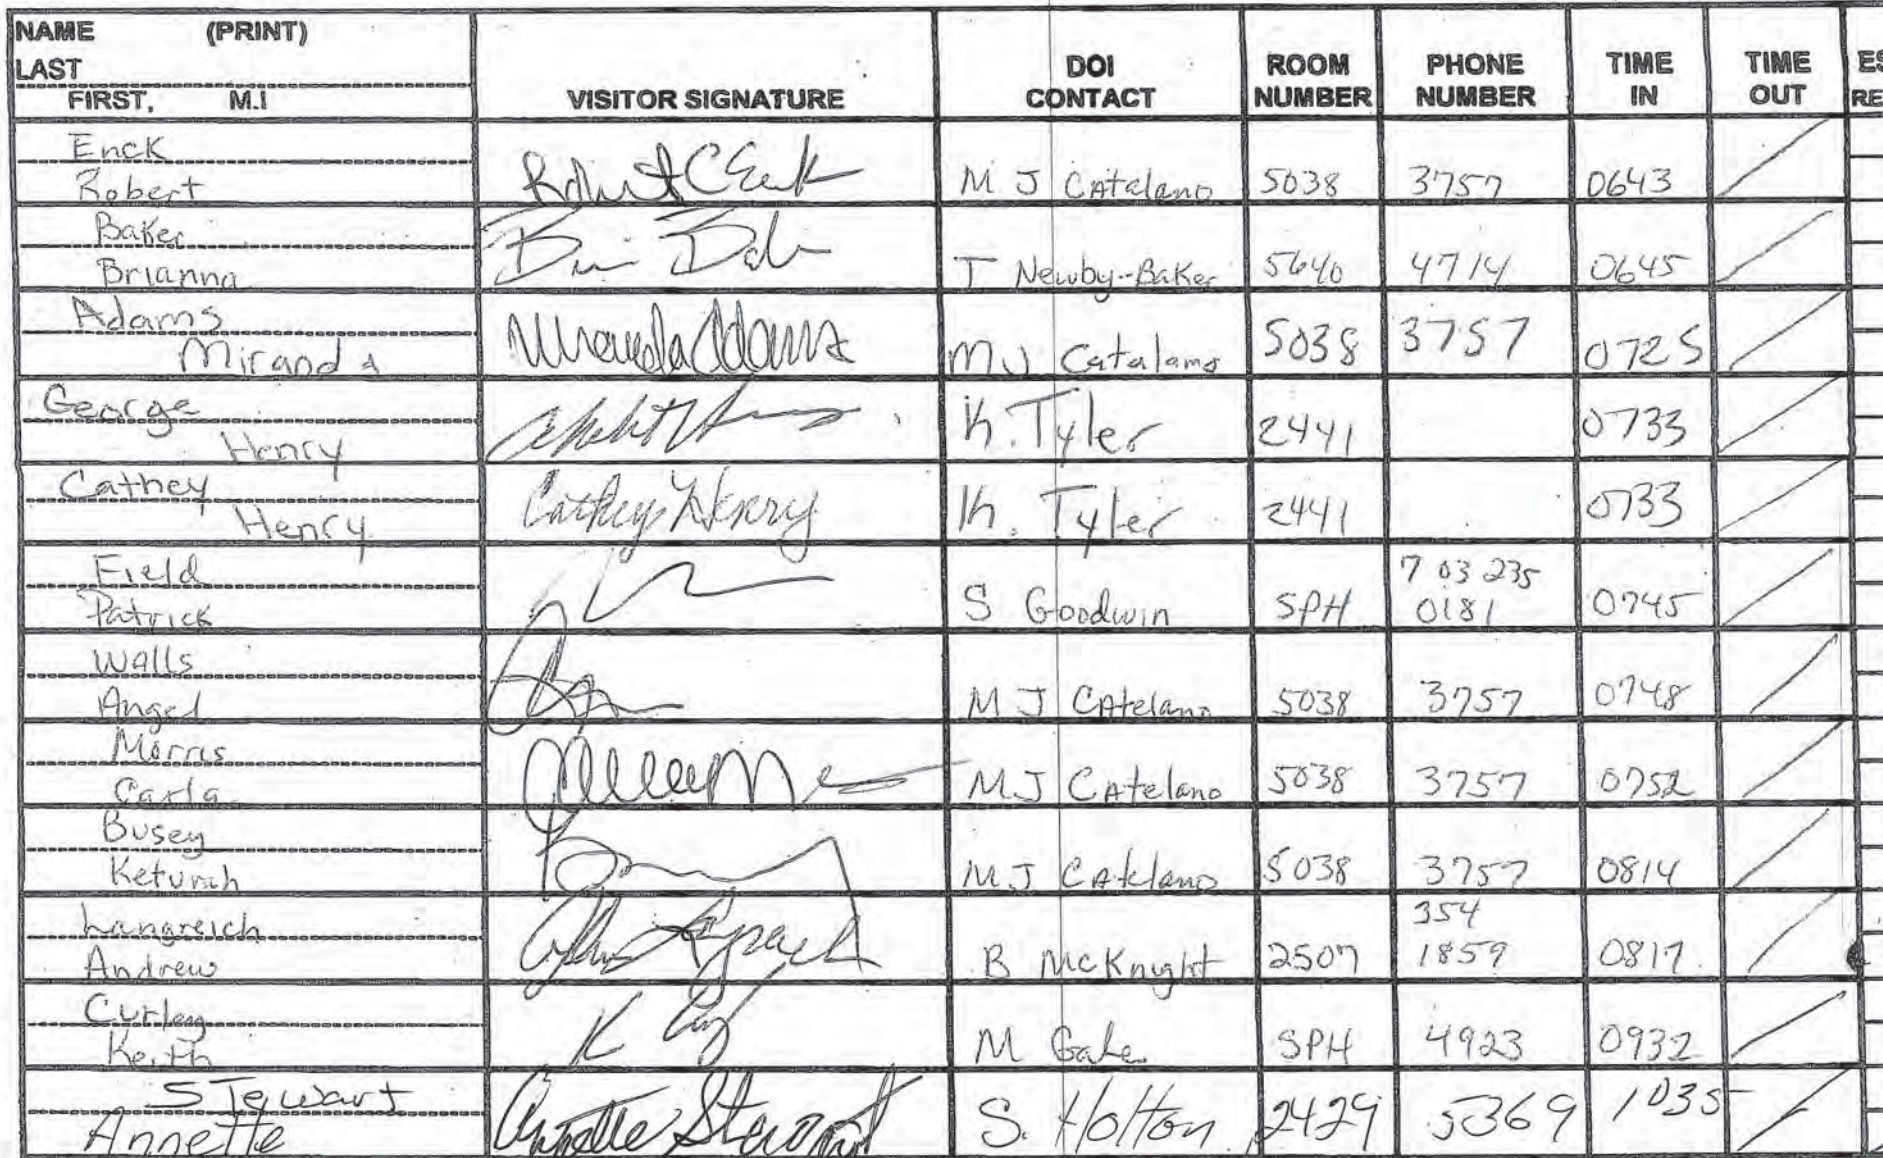 NAME (PRINT)
LAST
FIRST, M.I
VISITOR SIGNATURE
DOI
CONTACT
ROOM
NUMBER
PHONE
NUMBER
TIME
IN
TIME
OUT
ES
RE
Enck
Robert
Robert C Enck
M J Catalano 5038 3757 0643
Baker
Brianna
T Newby-Baker 5640 4714 0645
Adams
Miranda
Miranda Adams
M J Catalano 5038 3757 0725
George
Henry
K. Tyler 2441 0733
Cathey
Henry
Cathey Henry
K. Tyler 2441 0733
Field
Patrick
S Goodwin SPH 703 235
0181 0745
Walls
Angel
M J Catelano 5038 3757 0748
Morris
Carla
M J Catelano 5038 3757 0752
Busey
Keturah
M J Catelano 5038 3757 0814
Langreich
Andrew
B McKnight 2507 354
1859 0817
Curley
Keith
M Gale SPH 4923 0932
Stewart
Annette
Annette Stewart
S. Holton 2429 5369 1035